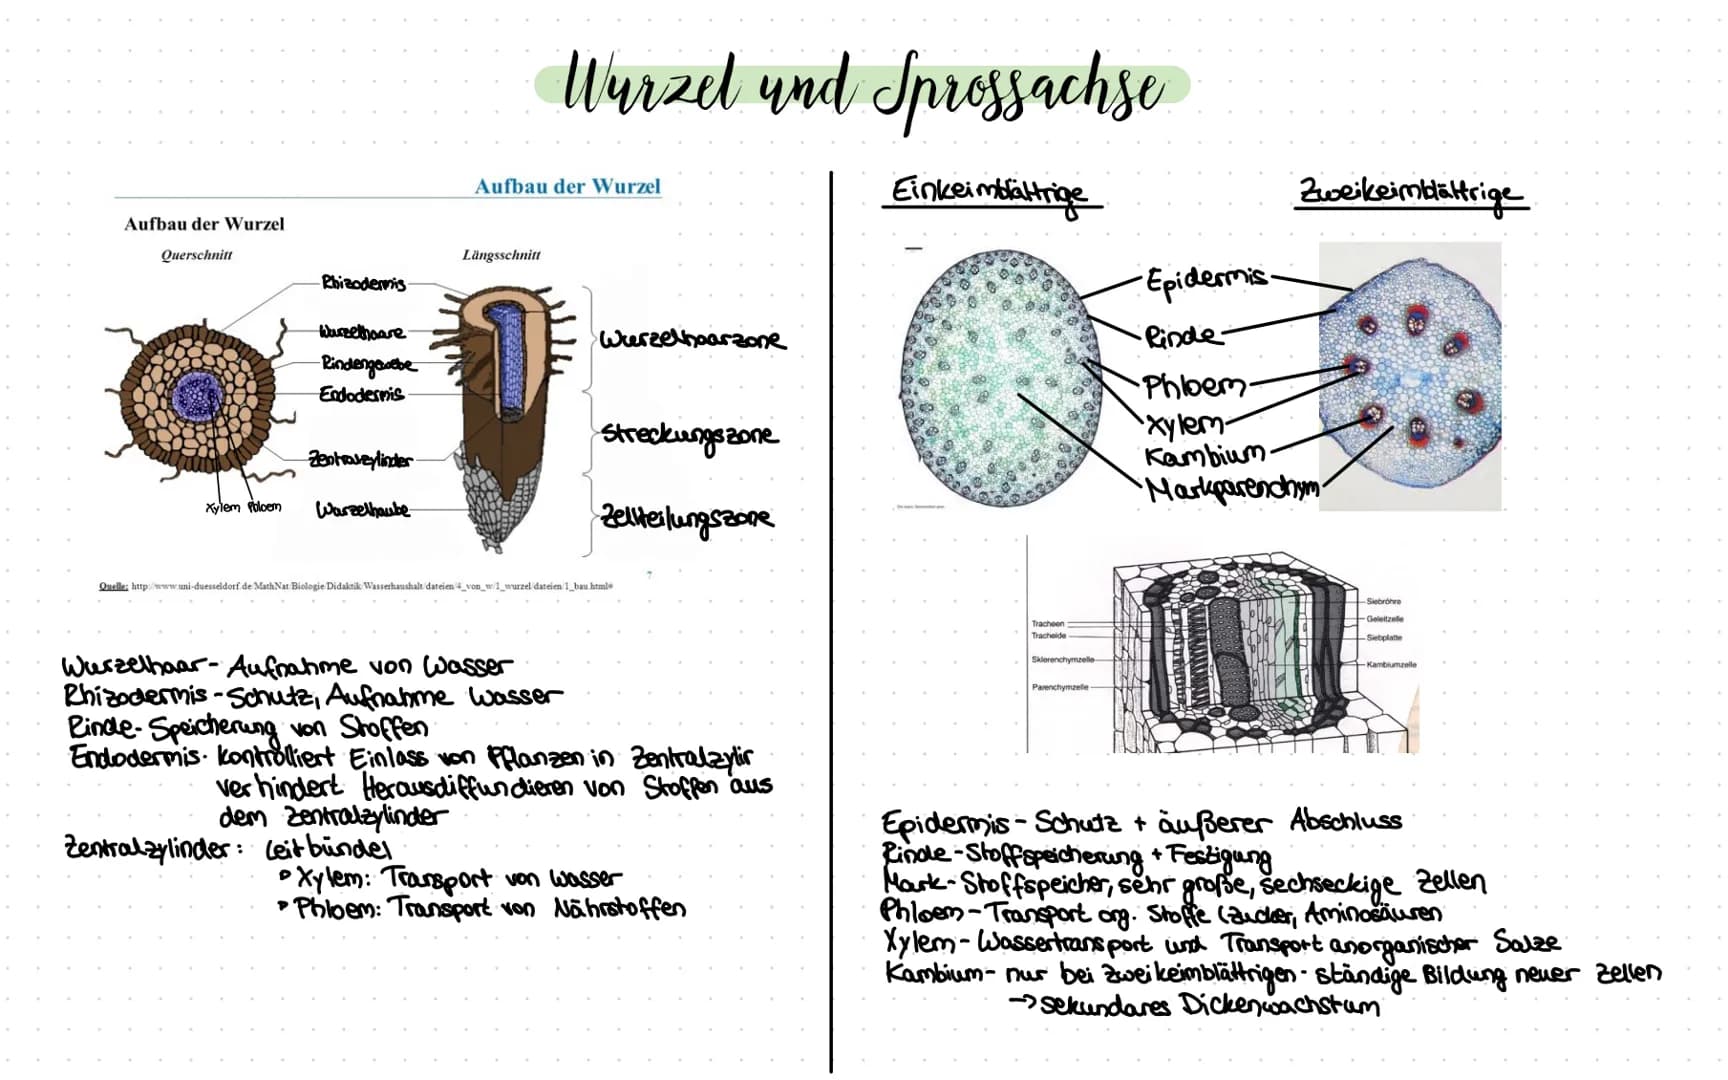 Wurzel und Sprossachse
Aufbau der Wurzel
Aufbau der Wurzel
Querschnitt
Längsschnitt
Rhizodermis
Wurzelhaare
Rindengewebe
Endodermis
Zentralzylinder
Wurzelhaube
Xylem Phloem
Wurzelhaarzone
Streckungszone
Zellteilungszone
7
Quelle: http://www.uni-duesseldorf.de/MathNat/Biologie/Didaktik/Wasserhaushalt/dateien/4_von_w/1_wurzel/dateien/1_bau.html#
Wurzelhaar - Aufnahme von Wasser
Rhizodermis - Schutz, Aufnahme Wasser
Rinde - Speicherung von Stoffen
Endodermis - kontrolliert Einlass von Pflanzen in Zentralzylir
verhindert Herausdiffundieren von Stoffen aus
dem Zentralzylinder
Zentralzylinder: Leitbündel
▹ Xylem: Transport von Wasser
▹ Phloem: Transport von Nährstoffen
Einkeimblättrige
Zweikeimblättrige
Epidermis
Rinde
Phloem
Xylem
Kambium
Markparenchym
Tracheen
Tracheide
Sklerenchymzelle
Parenchymzelle
Siebröhre
Geleitzelle
Siebplatte
Kambiumzelle
Epidermis - Schutz + äußerer Abschluss
Rinde - Stoffspeicherung + Festigung
Mark - Stoffspeicher, sehr große, sechseckige Zellen
Phloem - Transport org. Stoffe (Zucker, Aminosäuren
Xylem - Wassertransport und Transport anorganischer Salze
Kambium - nur bei zweikeimblättrigen - ständige Bildung neuer Zellen
→ sekundares Dickenwachstum